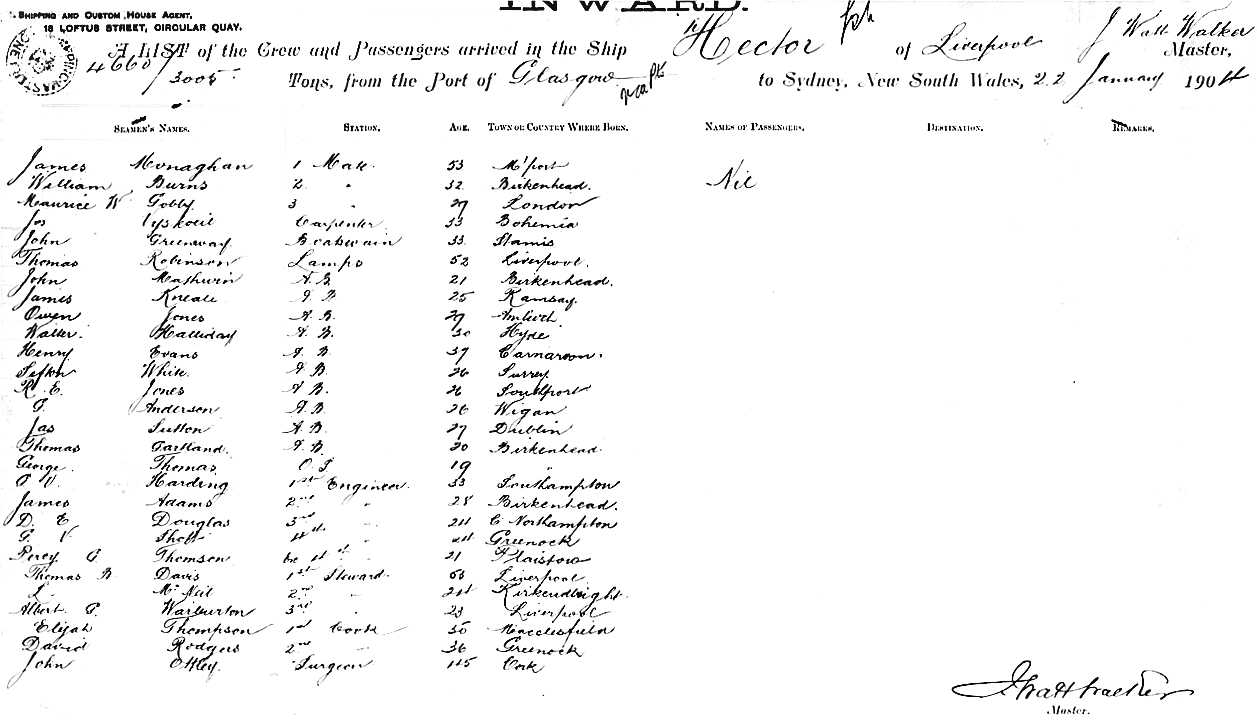 INWARD.
SHIPPING AND CUSTOM HOUSE AGENT,
18 LOFTUS STREET, CIRCULAR QUAY.
A LIST of the Crew and Passengers arrived in the Ship Hector of Liverpool J Watt Walker Master,
4660/3005 Tons, from the Port of Glasgow to Sydney, New South Wales, 22 January 1904
SEAMEN'S NAMES. STATION. AGE. TOWN OR COUNTRY WHERE BORN. NAMES OF PASSENGERS. DESTINATION. REMARKS.
James Monaghan 1 Mate 53 M'port
William Burns 2 " 32 Birkenhead. Nil
Maurice W Gobby 3 " 27 London
Jos Carpenter 33 Bohemia
John Greenway Boatswain 33
Thomas Robinson Lamps 52 Liverpool.
John Mashwin A.B. 21 Birkenhead.
James Kneale A B 25 Ramsay.
Owen Jones A.B. 29 Amlwch
Walter Halliday A.B. 30 Hyde
Henry Evans A.B. 39 Carnarvon.
Sefton White A.B 26 Surrey
R. E. Jones A B. 26 Southport
Anderson A.B 26 Wigan
Jas Sutton A.B 29 Dublin
Thomas Gartland. A.B. 20 Birkenhead.
George Thomas O S 19 "
Harding 1st Engineer 33 Southampton
James Adams 2nd " 28 Birkenhead.
D. E Douglas 3rd " 24 Northampton
G. 4th " 24 Greenock
Percy Thomson 21 Plaistow
Thomas B. Davis 1st Steward 53 Liverpool
McNeil 2nd " 24 Kirkcudbright.
Albert Warburton 3rd " 23 Liverpool
Elijah Thompson 1st Cook 35 Macclesfield
David Rodgers 2nd " 36 Greenock
John Ottley. Surgeon 45 Cork
J Watt Walker
Master.